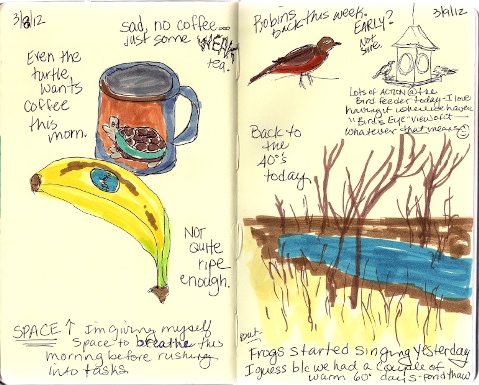 3/8/12
sad, no coffee...
just some WEAK
tea.
Even the
turtle
wants
coffee
this
morn.
NOT
QUITE
ripe
enough.
SPACE ↑ Im giving myself
Space to breathe this
morning before rushing
into tasks
3/9/12
Robins
back this week.
EARLY?
Not
sure.
LOTS of ACTION @ the
Bird feeder today - I love
having it where we have a
"Bird's Eye" view of it -
whatever that means
Back to
the
40°s
today
Frogs started singing yesterday
I guess b/c we had a couple of
warm 60° days - pond thaw